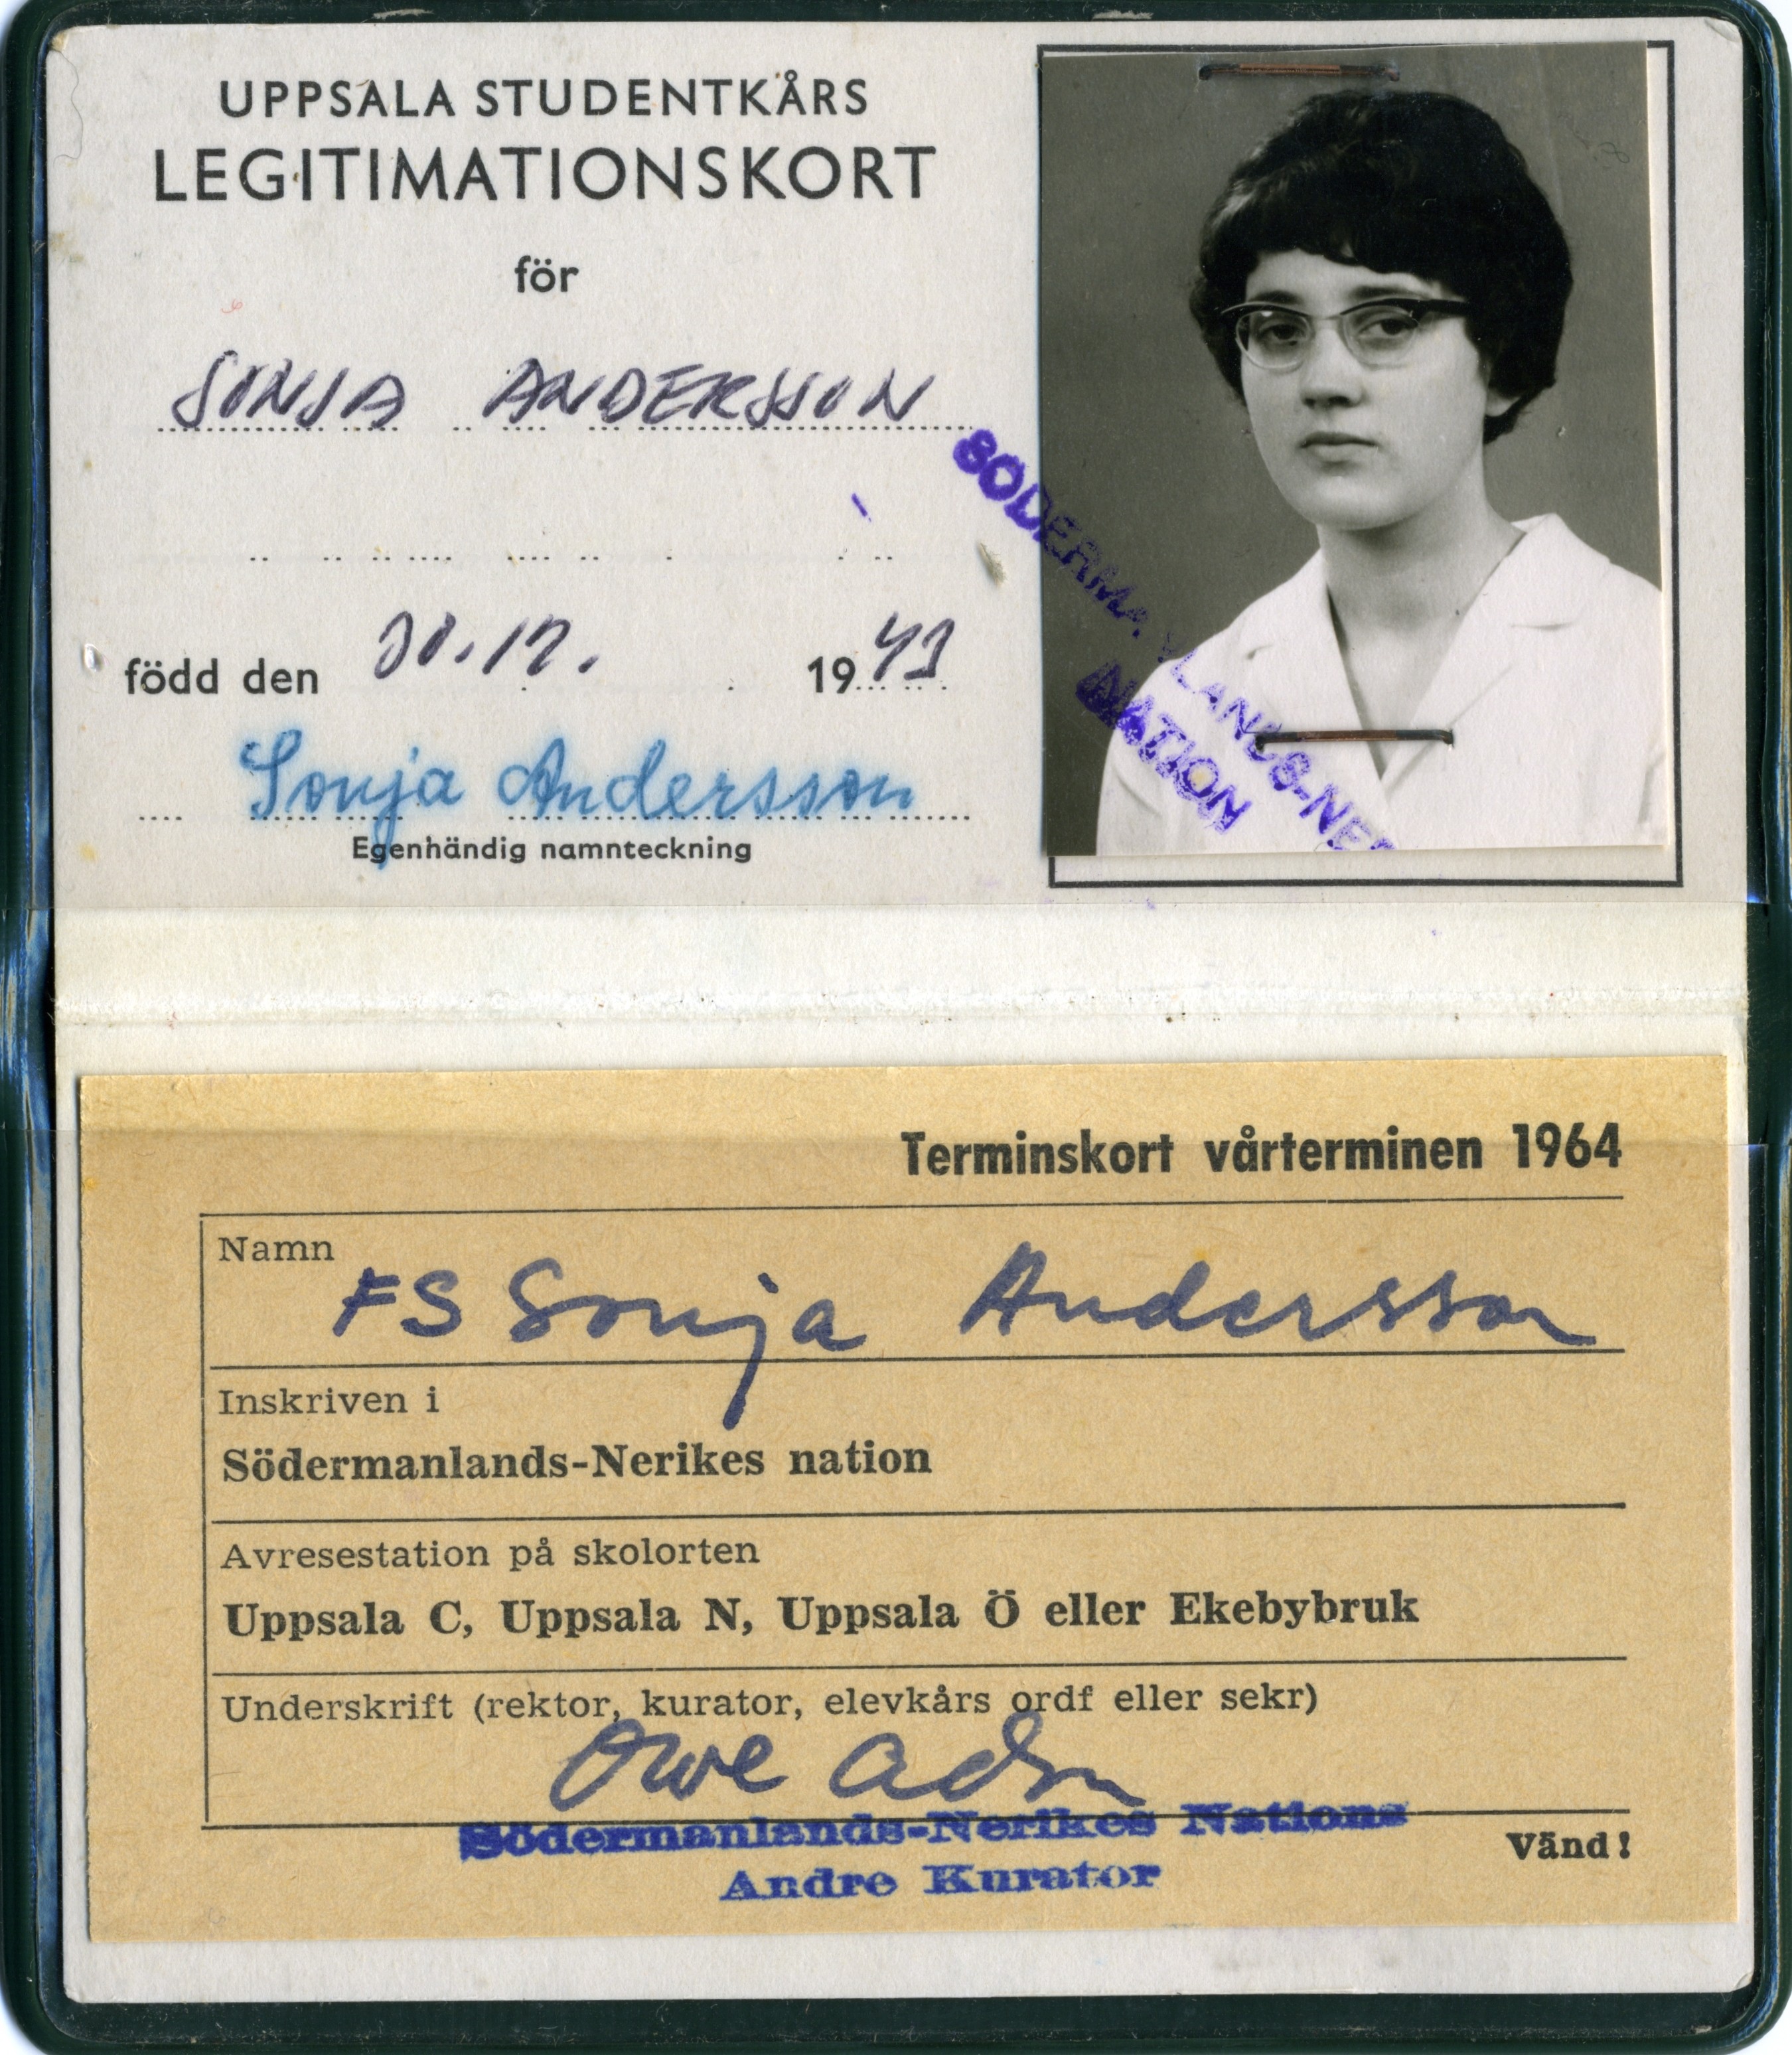 UPPSALA STUDENTKÅRS
LEGITIMATIONSKORT
för
SONJA ANDERSSON
född den 1943
Sonja Andersson
Egenhändig namnteckning
SÖDERMANLANDS-NER
NATION
Terminskort vårterminen 1964
Namn
FS Sonja Andersson
Inskriven i
Södermanlands-Nerikes nation
Avresestation på skolorten
Uppsala C, Uppsala N, Uppsala Ö eller Ekebybruk
Underskrift (rektor, kurator, elevkårs ordf eller sekr)
Owe
Södermanlands-Nerikes Nations
Andre Kurator
Vänd!